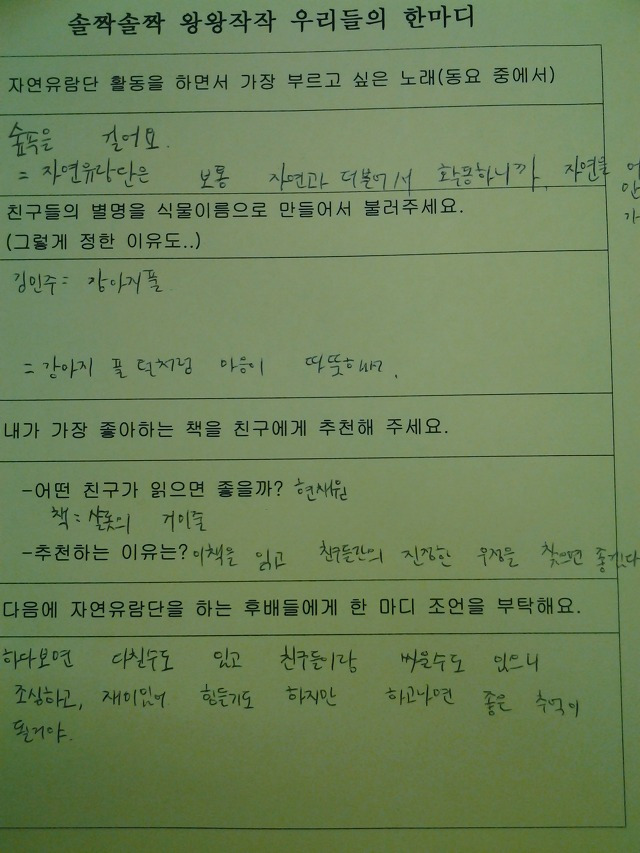 솔짝솔짝 왕왕작작 우리들의 한마디
자연유람단 활동을 하면서 가장 부르고 싶은 노래(동요 중에서)
숲속을 걸어요.
= 자연유람단은 보통 자연과 더불어서 활동하니까, 자연을
친구들의 별명을 식물이름으로 만들어서 불러주세요.
(그렇게 정한 이유도..)
김민주= 강아지풀
= 강아지 풀 털처럼 마음이 따뜻해서.
내가 가장 좋아하는 책을 친구에게 추천해 주세요.
-어떤 친구가 읽으면 좋을까? 현재원
책= 샬롯의 거미줄
-추천하는 이유는? 이책을 읽고 친구들간의 진정한 우정을 찾으면 좋겠다
다음에 자연유람단을 하는 후배들에게 한 마디 조언을 부탁해요.
하다보면 다칠수도 있고 친구들이랑 싸울수도 있으니
조심하고, 힘들기도 하지만 하고나면 좋은 추억이
될거야.